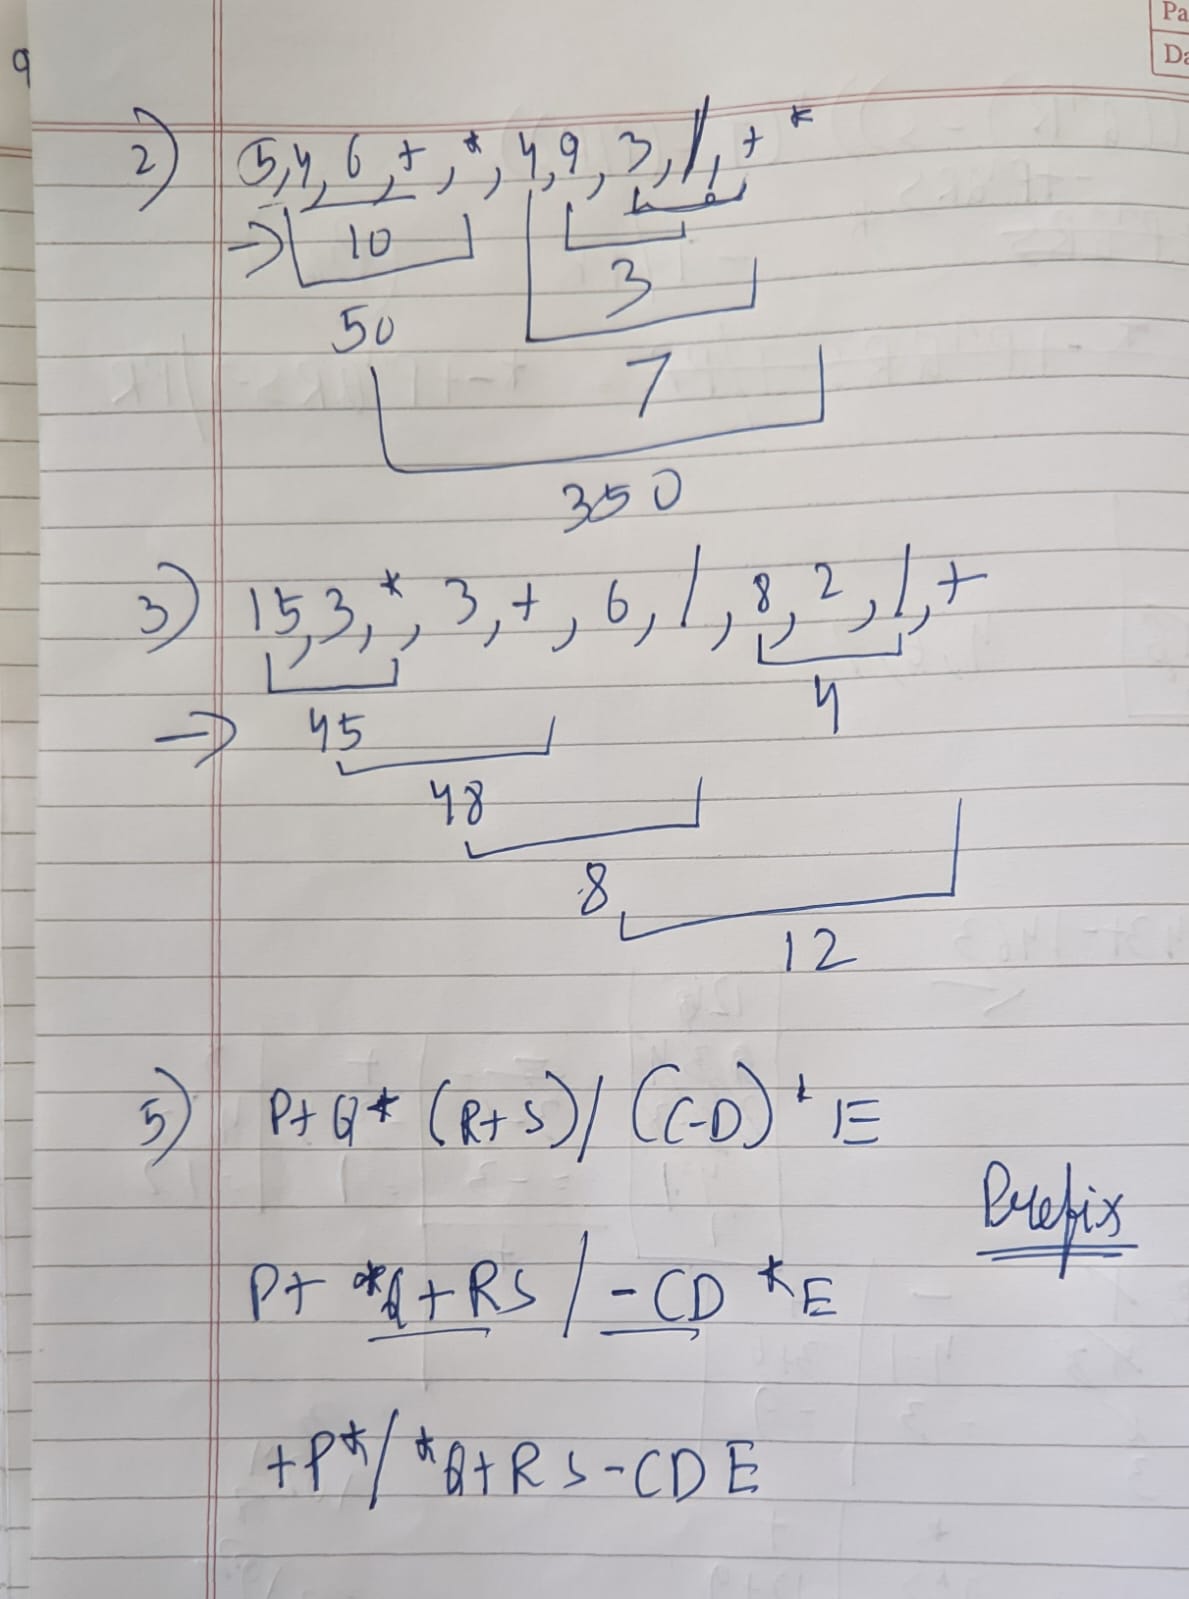 Pa
Da
9
2) 5,4, 6, +, *, 4,9, 3, /, + *
→ 10
3
50
7
350
3) 15,3, *, 3, +, 6, /, 8, 2, /, +
4
→ 45
48
8
12
5) P+Q* (R+S)/ (C-D) * E
Prefix
P+ *Q+RS / -CD *E
+P*/ *Q+RS-CDE